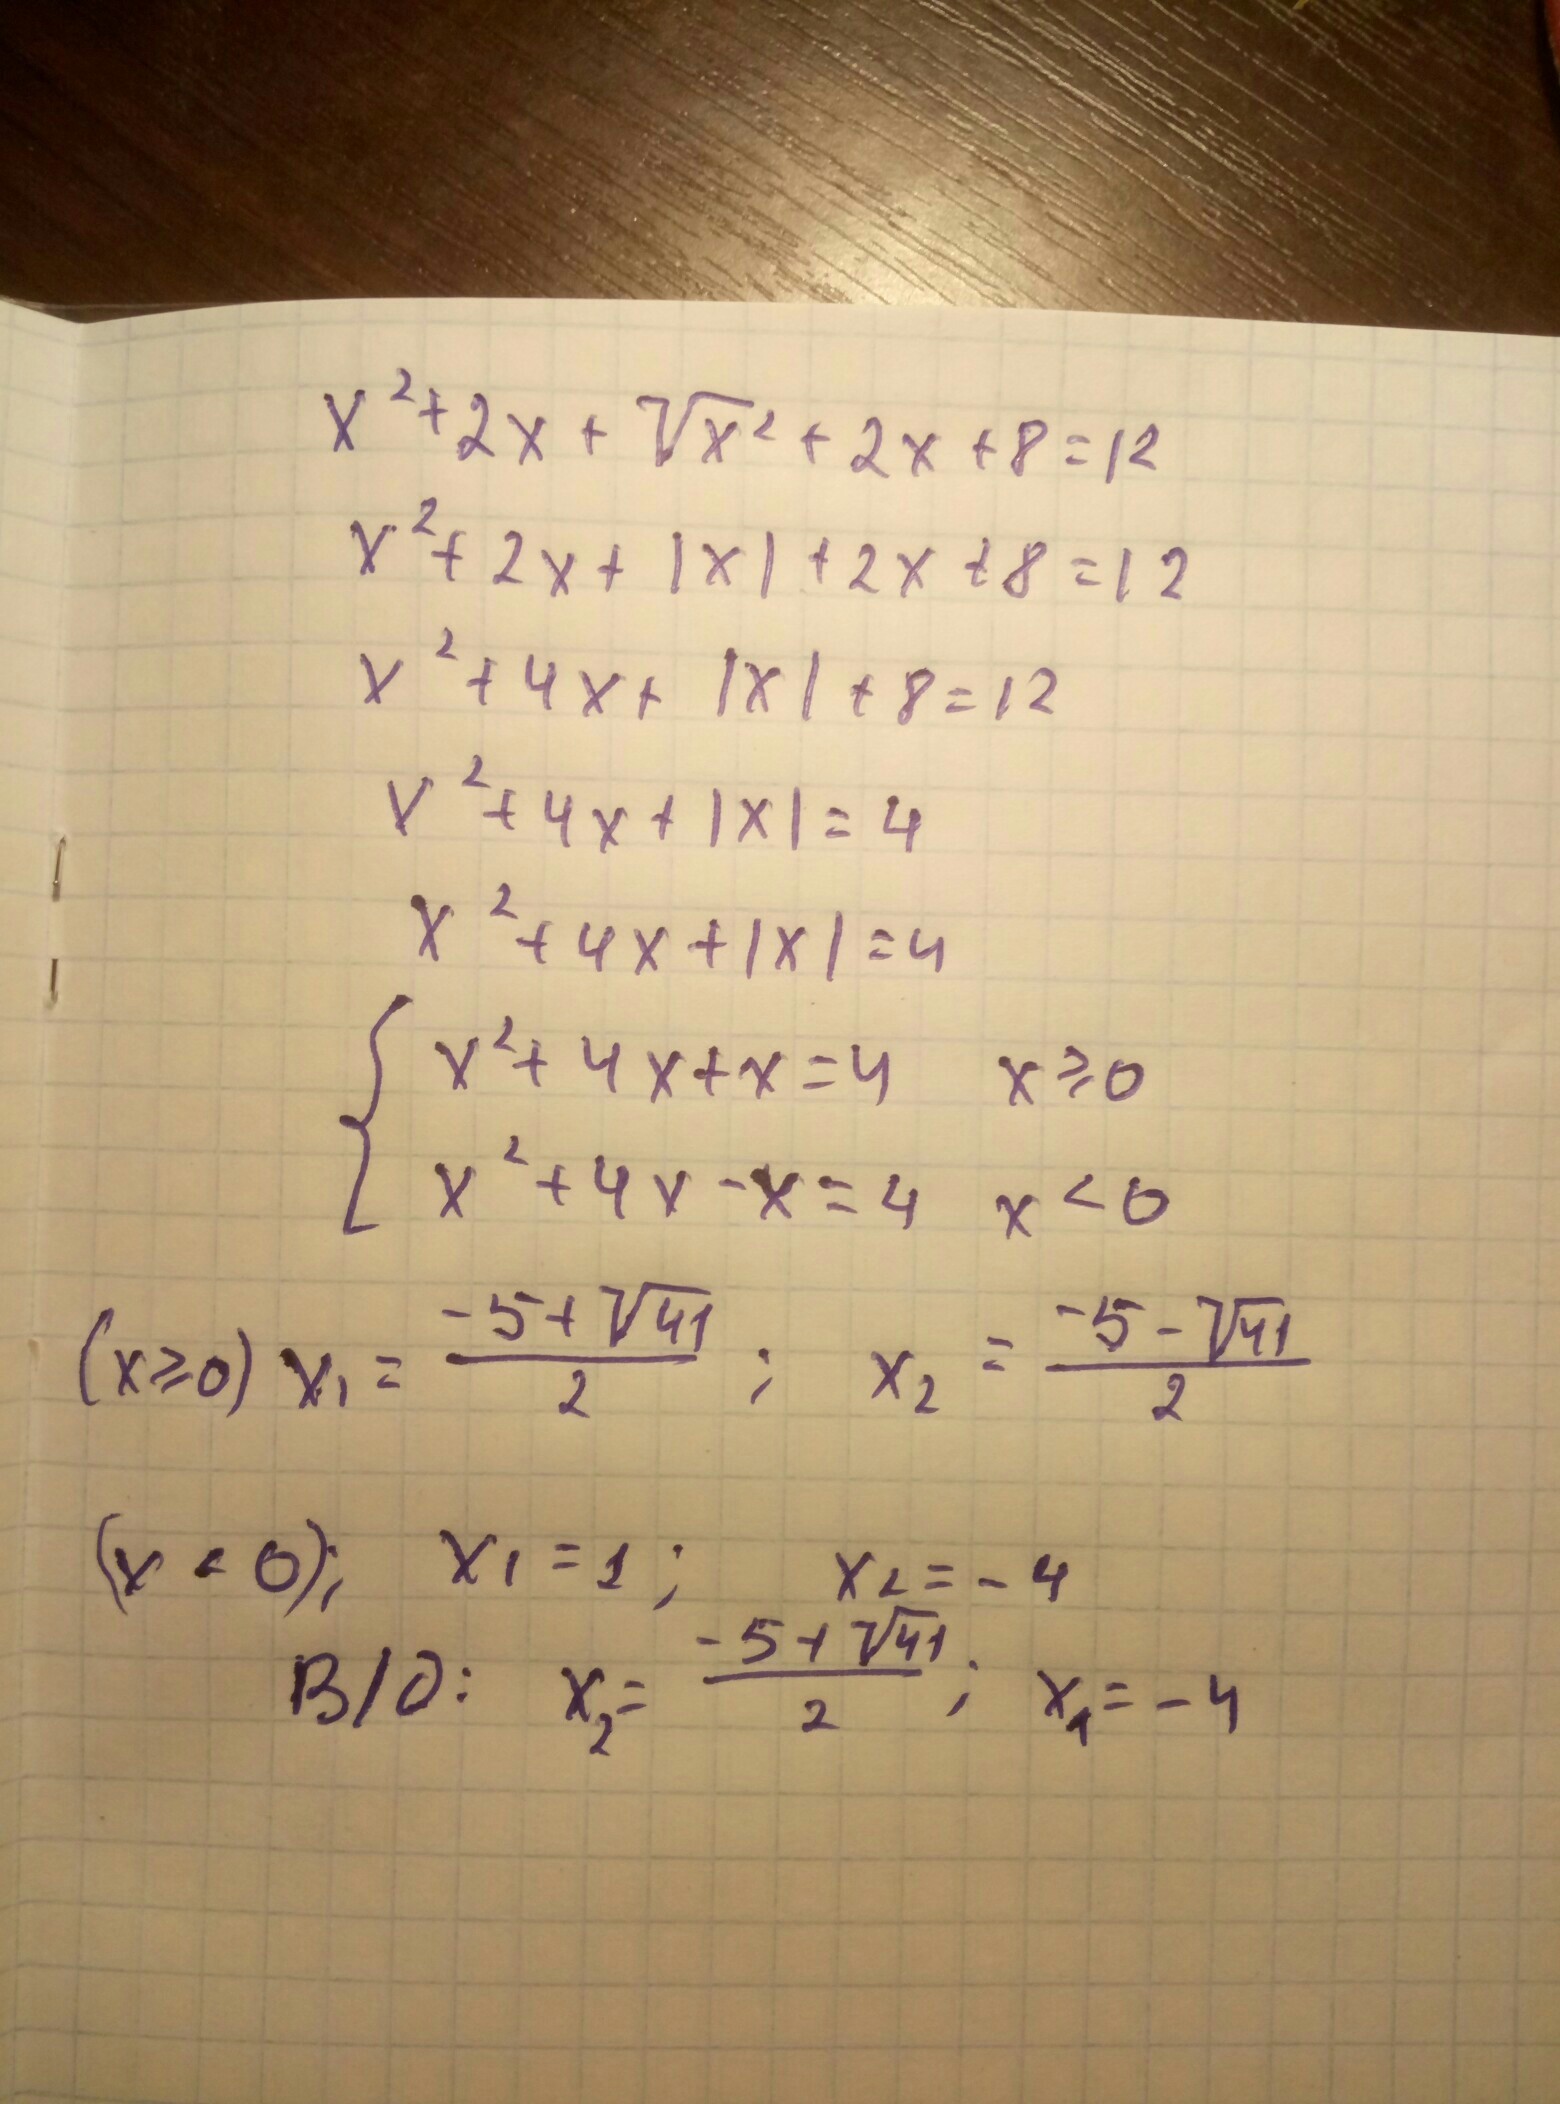 x² + 2x + √x² + 2x + 8 = 12
x² + 2x + |x| + 2x + 8 = 12
x² + 4x + |x| + 8 = 12
x² + 4x + |x| = 4
x² + 4x + |x| = 4
{ x² + 4x + x = 4 x ≥ 0
x² + 4x - x = 4 x < 0
(x ≥ 0) x₁ = (-5 + √41)/2 ; x₂ = (-5 - √41)/2
(x < 0); x₁ = 1 ; x₂ = -4
В/О: x₂ = (-5 + √41)/2 ; x₁ = -4